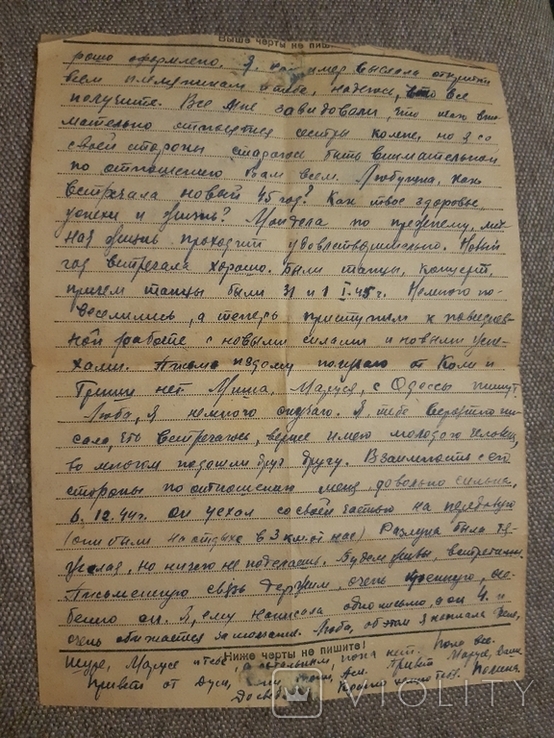 Выше черты не пиш
рошо оформлено. Я, на мер выслала открытки
всем племяникам и тебе, надеюсь, что все
получите. Все мне завидовали, что так вни
мательно относятся сестры ко мне, но я со
своей стороны стараюсь быть внимательной
по отношению к Вам всем. Любушка, как
встречала новый 45 год? Как твое здоровье,
успехи и жизнь? Мои дела по прежнему, лич
ная жизнь проходит удовлетворительно. Новый
год встречала хорошо. Были танцы, концерт,
причем танцы были 31 и 1 I.45 г. Немного по-
веселились, а теперь приступим к повседнев
ной работе с новыми силами и новыми успе-
хами. Письма из дому получаю от Коли и
Гриши нет. Миша, Маруся, с Одессы пишут
Люба, я немного скучаю. Я тебе вероятно пи-
сала, что встречалась, вернее имею молодого человека,
во многом подошли друг другу. Взаимность с его
стороны по отношению меня довольно сильна.
6.12.44г. он уехал со своей частью на передовую
(они были на отдыхе в 3 км. от нас) Разлука была тя-
желая, но ничего не поделаешь. Будем живы, встретимся.
Письменную связь держим, очень осо-
бенно он. Я ему написала одно письмо, а он 4 и
очень обижается за молчание. Люба, об этом я писала
Шуре, Марусе и тебе, а остальным, пока нет. Пока все.
Ниже черты не пишите!
Привет от Дуси, Привет Марусе,
До свид Крепко целую тебя. Полина
VIOLITY